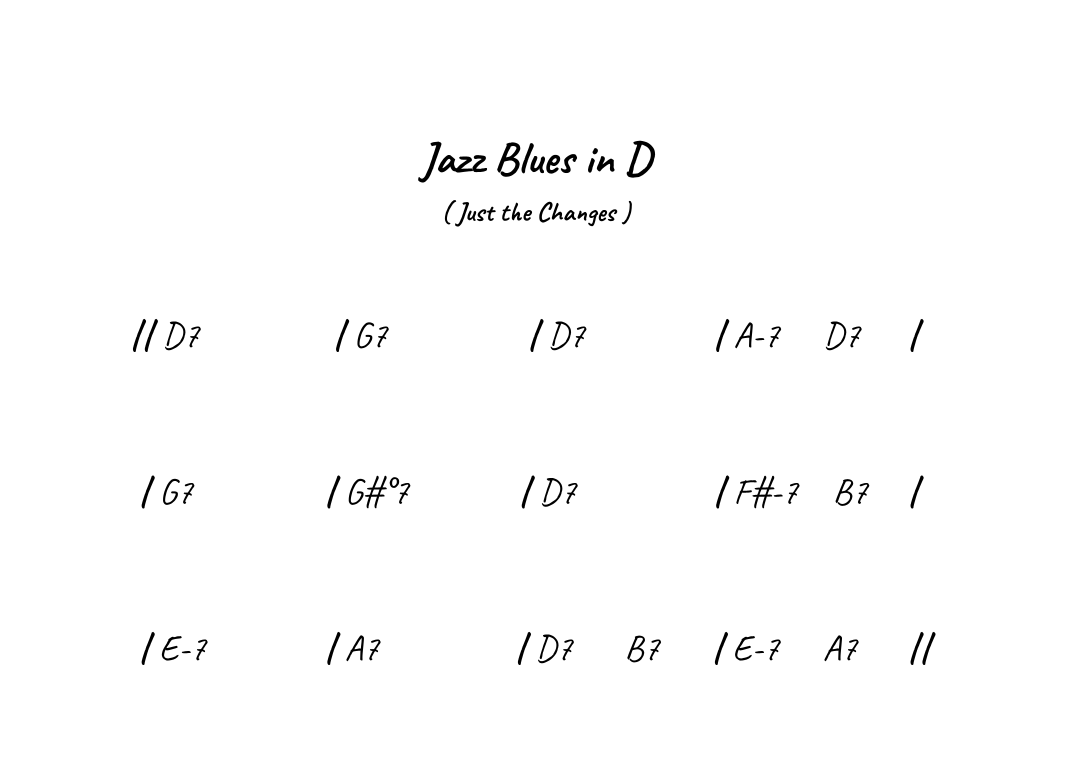 Jazz Blues in D
( Just the Changes )
|| D7 | G7 | D7 | A-7 D7 |
| G7 | G#°7 | D7 | F#-7 B7 |
| E-7 | A7 | D7 B7 | E-7 A7 ||